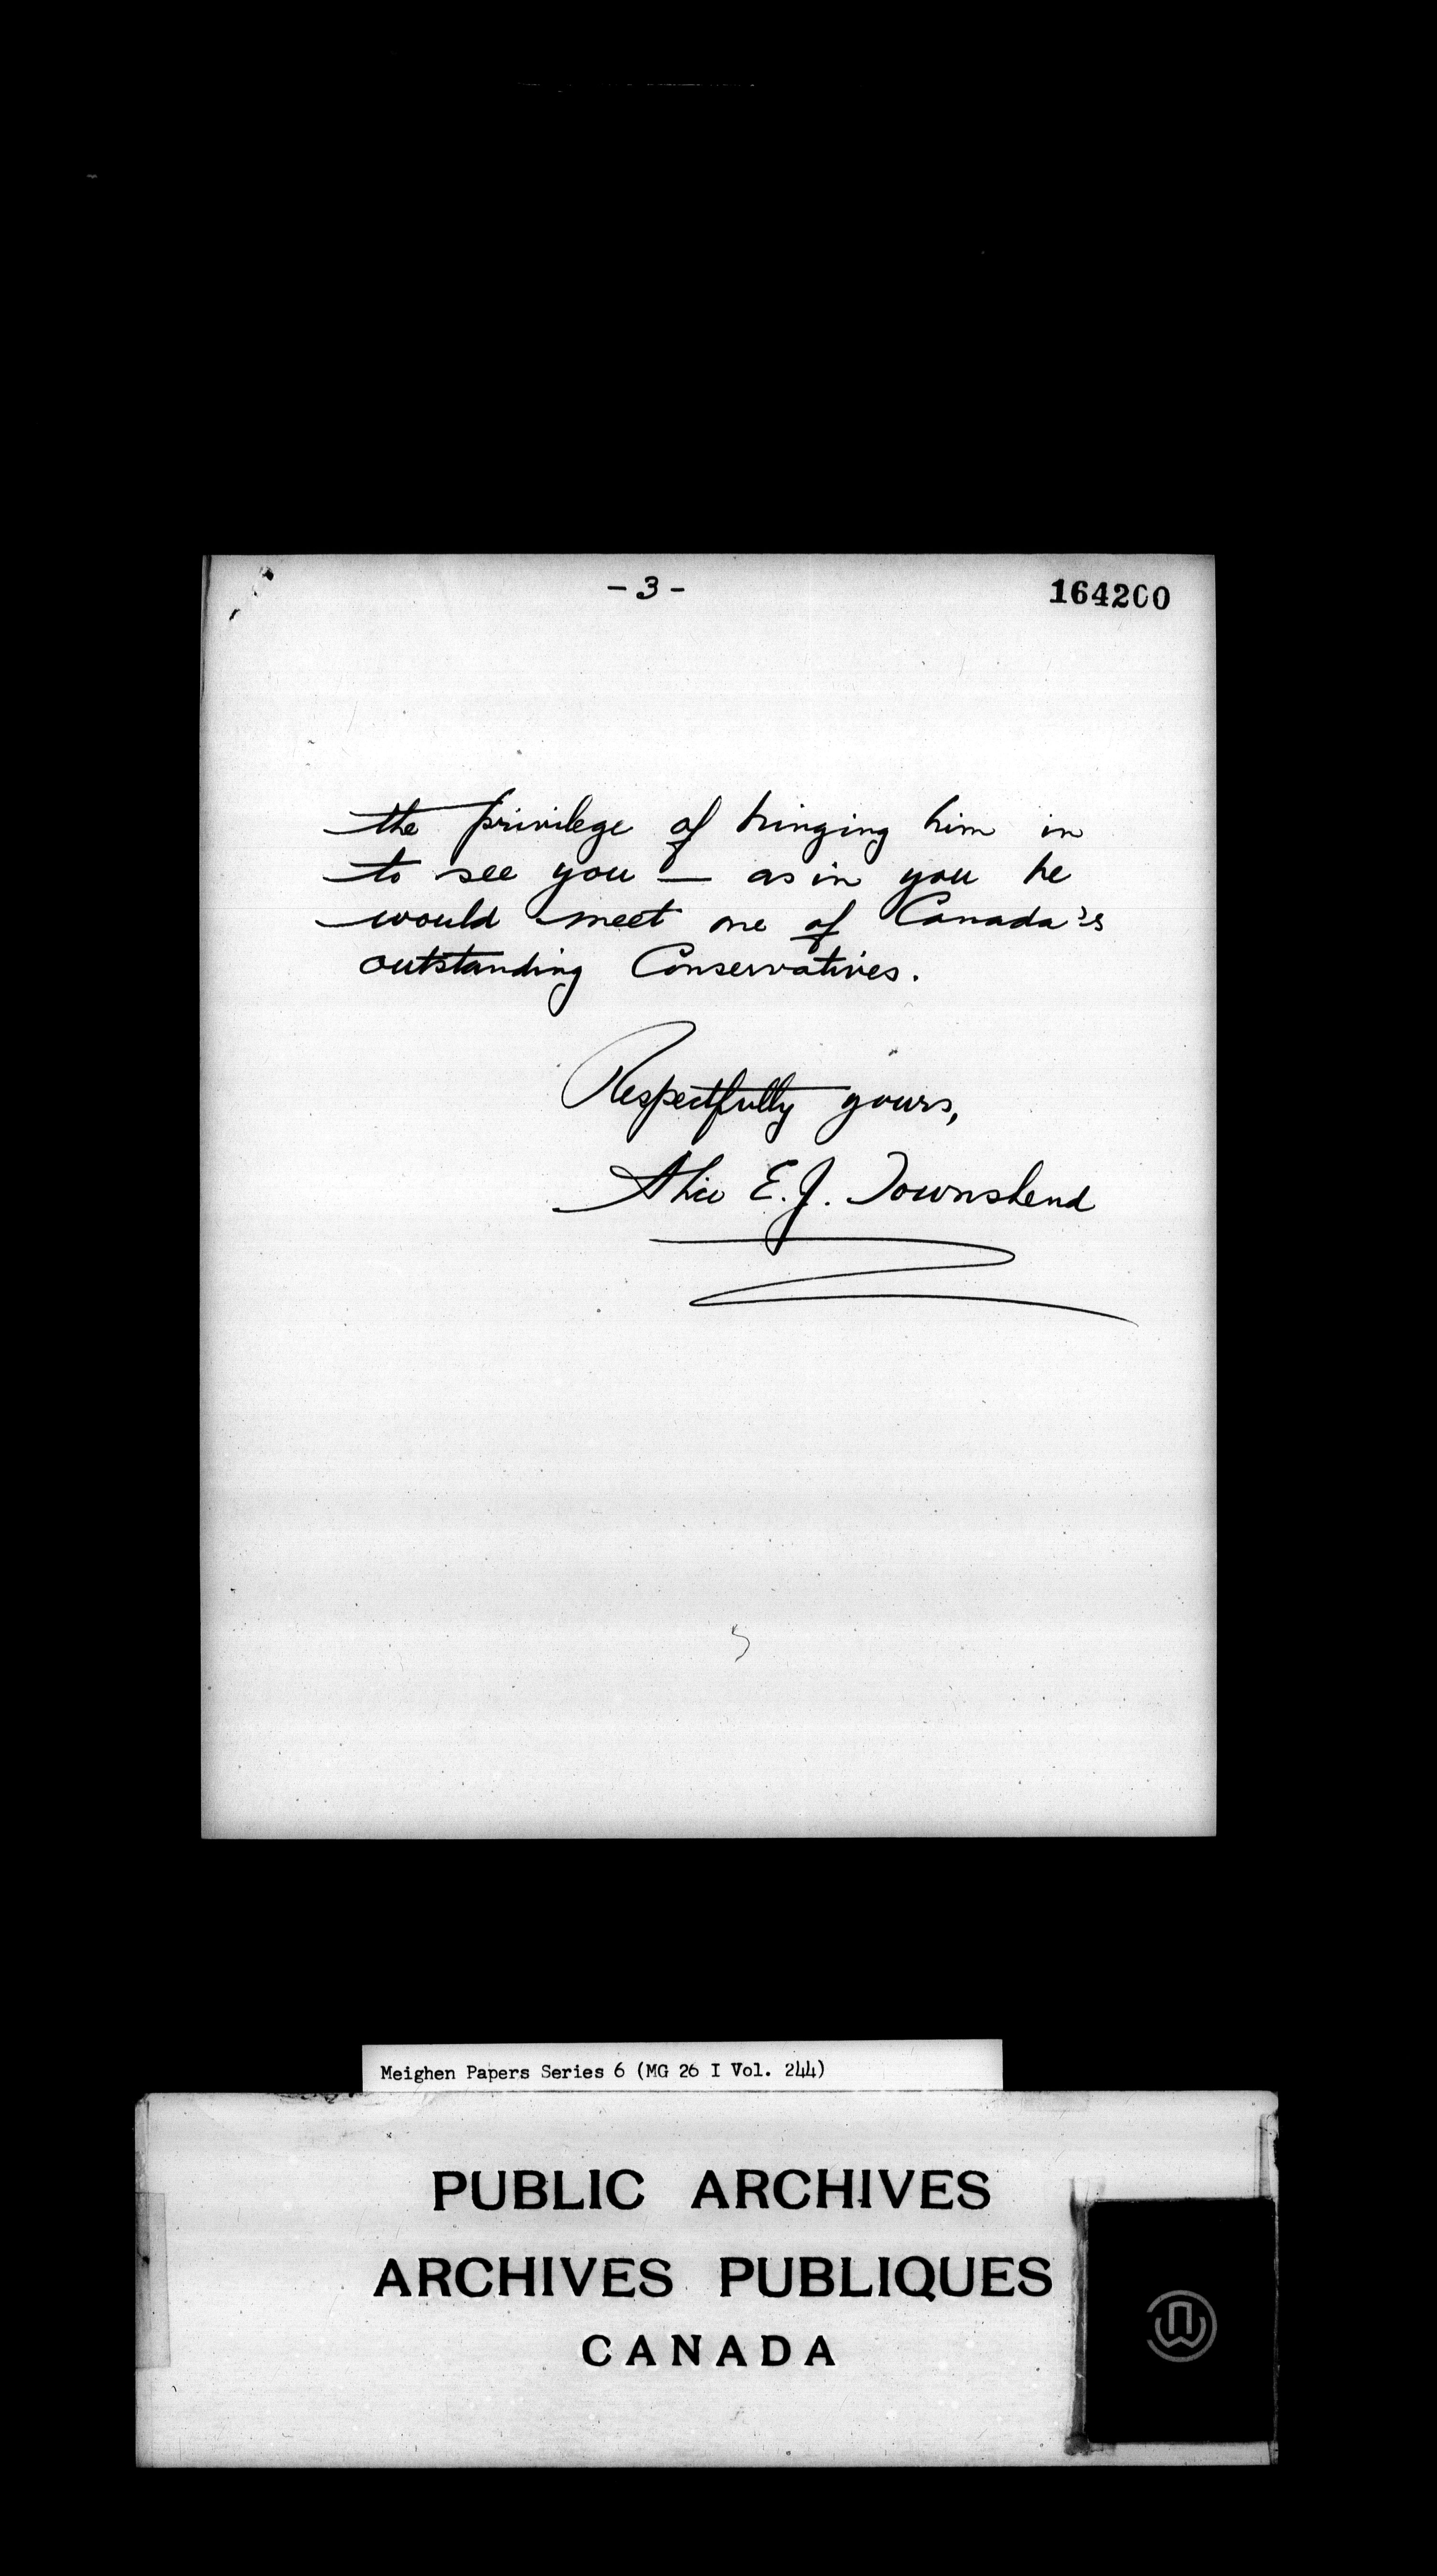 - 3 -
164200
the privilege of bringing him in
to see you — as in you he
would meet one of Canada's
outstanding Conservatives.
Respectfully yours,
Alice E. J. Townshend
Meighen Papers Series 6 (MG 26 I Vol. 244)
PUBLIC ARCHIVES
ARCHIVES PUBLIQUES
CANADA